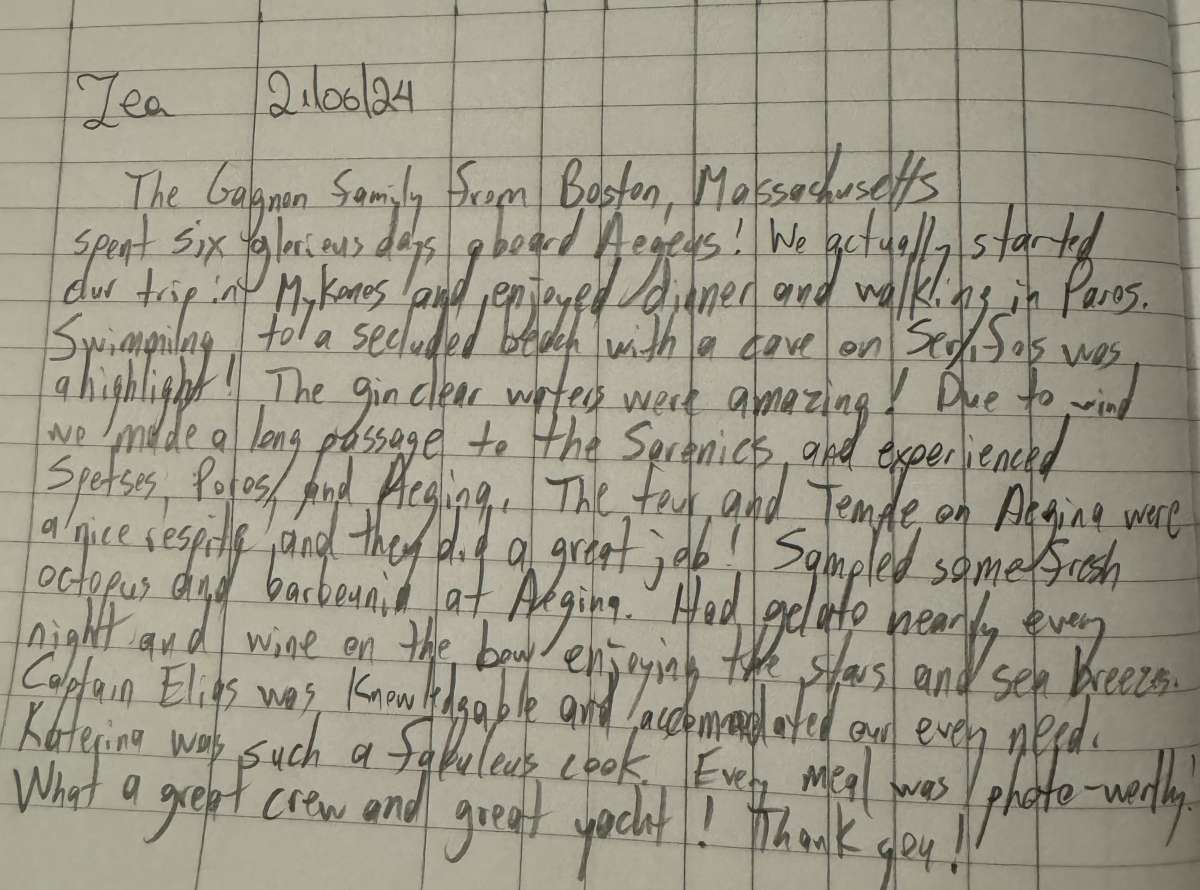 Zea 21/06/24
The Gagnon family from Boston, Massachusetts
spent six glorious days aboard Aegeus! We actually started
our trip in Mykonos and enjoyed dinner and walking in Paros.
Swimming to a secluded beach with a cave on Serifos was
a highlight! The gin clear waters were amazing! Due to wind
we made a long passage to the Saronics, and experienced
Spetses, Poros, and Aegina. The tour and Temple on Aegina were
a nice respite, and they did a great job! Sampled some fresh
octopus and barbounia at Aegina. Had gelato nearly every
night and wine on the bow enjoying the stars and sea breezes.
Captain Elias was knowledgable and accommodated our every need.
Katerina was such a fabulous cook. Every meal was photo-worthy!
What a great crew and great yacht! Thank you!